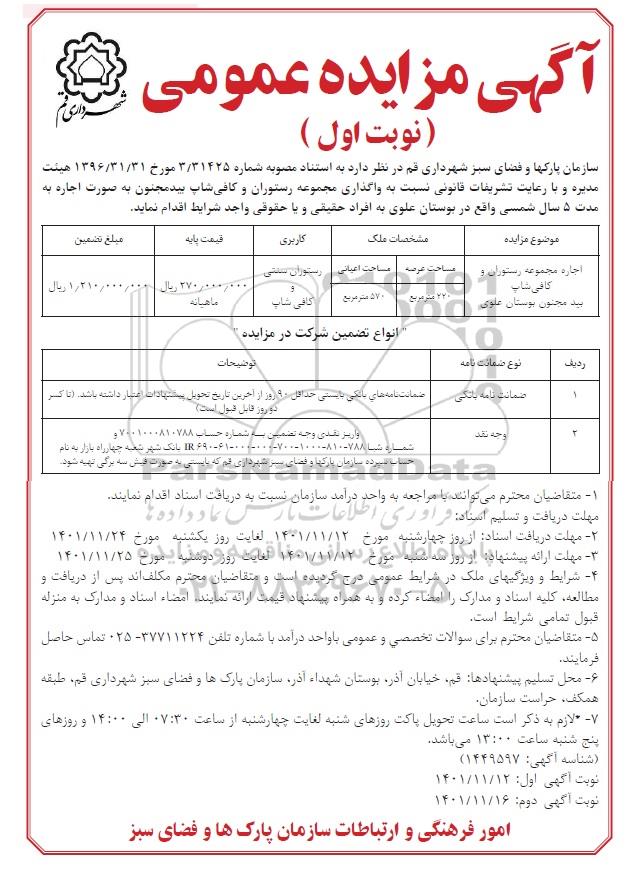 آگهی مزایده عمومی
( نوبت اول )
شهرداری قم
سازمان پارکها و فضای سبز شهرداری قم در نظر دارد به استناد مصوبه شماره ۳/۳۱۴۲۵ مورخ ۱۳۹۶/۳۱/۳۱ هیئت
مدیره و با رعایت تشریفات قانونی نسبت به واگذاری مجموعه رستوران و کافی‌شاپ بیدمجنون به صورت اجاره به
مدت ۵ سال شمسی واقع در بوستان علوی به افراد حقیقی و یا حقوقی واجد شرایط اقدام نماید.
موضوع مزایده مشخصات ملک کاربری قیمت پایه مبلغ تضمین
اجاره مجموعه رستوران و کافی‌شاپ بید مجنون بوستان علوی
مساحت عرصه ۲۲۰ مترمربع
مساحت اعیانی ۵۷۰ مترمربع
رستوران سنتی و کافی شاپ
۲۷۰/۰۰۰/۰۰۰ ریال ماهیانه
۱/۲۱۰/۰۰۰/۰۰۰ ریال
" انواع تضمین شرکت در مزایده "
ردیف نوع ضمانت نامه توضیحات
۱ ضمانت نامه بانکی ضمانت‌نامه‌های بانکی بایستی حداقل ۹۰ روز از آخرین تاریخ تحویل پیشنهادات اعتبار داشته باشد. (تا کسر
دو روز قابل قبول است)
۲ وجه نقد واریز نقدی وجه تضمین به شماره حساب ۷۰۰۱۰۰۰۸۱۰۷۸۸ و
شماره شبا IR ۶۹۰-۶۱۰-۰۰۰-۰۰۰-۷۰۰-۱۰۰۰-۸۱۰-۷۸۸ بانک شهر شعبه چهارراه بازار به نام
حساب سپرده سازمان پارکها و فضای سبز شهرداری قم که بایستی به صورت فیش سه برگی تهیه شود.
۱- متقاضیان محترم می‌توانند با مراجعه به واحد درآمد سازمان نسبت به دریافت اسناد اقدام نمایند.
مهلت دریافت و تسلیم اسناد:
۲- مهلت دریافت اسناد: از روز چهارشنبه مورخ ۱۴۰۱/۱۱/۱۲ لغایت روز یکشنبه مورخ ۱۴۰۱/۱۱/۲۴
۳- مهلت ارائه پیشنهاد: از روز سه شنبه مورخ ۱۴۰۱/۱۱/۱۲ لغایت روز دوشنبه مورخ ۱۴۰۱/۱۱/۲۵
۴- شرایط و ویژگیهای ملک در شرایط عمومی درج گردیده است و متقاضیان محترم مکلف‌اند پس از دریافت و
مطالعه، کلیه اسناد و مدارک را امضاء کرده و به همراه پیشنهاد قیمت ارائه نمایند. امضاء اسناد و مدارک به منزله
قبول تمامی شرایط است.
۵- متقاضیان محترم برای سوالات تخصصی و عمومی باواحد درآمد با شماره تلفن ۳۷۷۱۱۲۲۴- ۰۲۵ تماس حاصل
فرمایند.
۶- محل تسلیم پیشنهادها: قم، خیابان آذر، بوستان شهداء آذر، سازمان پارک ها و فضای سبز شهرداری قم، طبقه
همکف، حراست سازمان.
۷- *لازم به ذکر است ساعت تحویل پاکت روزهای شنبه لغایت چهارشنبه از ساعت ۰۷:۳۰ الی ۱۴:۰۰ و روزهای
پنج شنبه ساعت ۱۳:۰۰ می‌باشد.
(شناسه آگهی: ۱۴۴۹۵۹۷)
نوبت آگهی اول: ۱۴۰۱/۱۱/۱۲
نوبت آگهی دوم: ۱۴۰۱/۱۱/۱۶
امور فرهنگی و ارتباطات سازمان پارک ها و فضای سبز
ParsNamadData